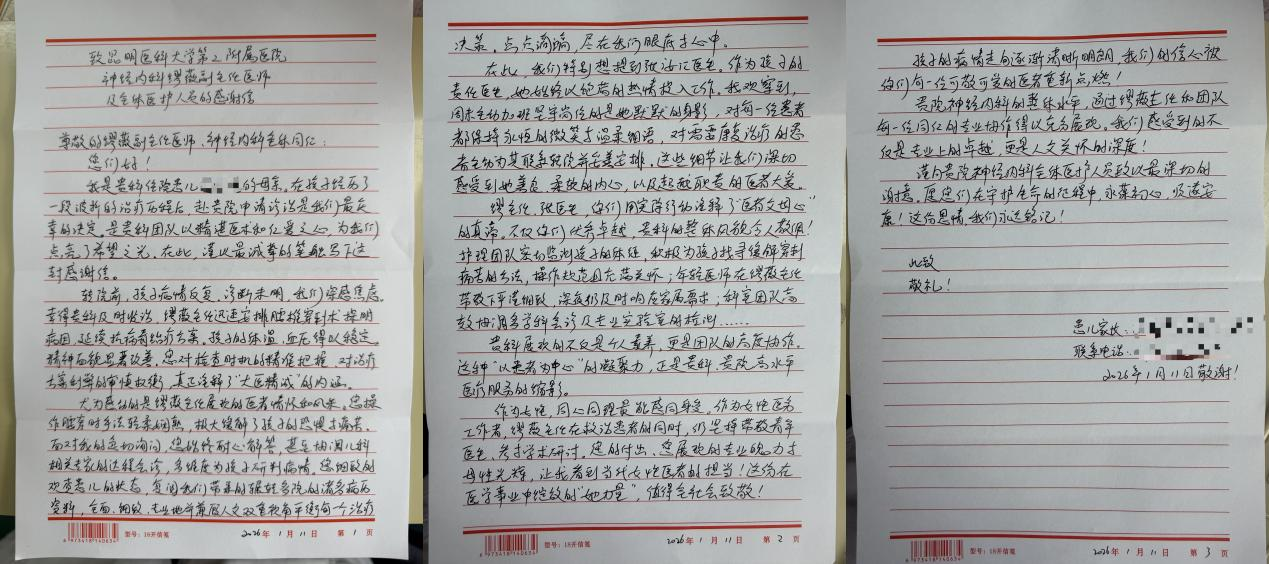 致昆明医科大学第2附属医院
神经内科缪薇副主任医师
及全体医护人员的感谢信
尊敬的缪薇副主任医师、神经内科全体同仁：
您们好！
我是贵科住院患儿的母亲。在孩子经历了
一段波折的治疗历程后，赴贵院申请诊治是我们最庆
幸的决定。是贵科团队以精湛医术和仁爱之心，为我们
点亮了希望之光。在此，谨以最诚挚的笔触写下这
封感谢信。
转院前，孩子病情反复，诊断未明，我们深感焦虑。
幸得贵科及时收治，缪薇主任迅速安排腰椎穿刺术探明
病因，延续抗病毒治疗方案。孩子的体温、血压得以稳定
精神面貌显著改善。您对检查时机的精准把握，对治疗
方案利弊的审慎权衡，真正诠释了“大医精诚”的内涵。
尤为感动的是缪薇主任展现的医者情怀和风采。您操
作腰穿时手法轻柔娴熟，极大缓解了孩子的恐惧与痛苦。
面对我的急切询问，您始终耐心解答，甚至协调儿科
相关专家的远程会诊，多维度为孩子研判病情。您细致的
观察患儿的状态，复阅我们带来的辗转多院的诸多病历
资料，全面、细致、专业地并兼顾人文双重视角平衡每一个治疗
型号：16开信笺
6 973418 140634
2026年1月11日 第1页
决策。点点滴滴，尽在我们眼底与心中。
在此，我们特别想提到张医生。作为孩子的
责任医生，她始终以饱满的热情投入工作。我观察到，
周末主动加班坚守岗位的是她默默的身影，对每一位患者
都保持永恒的微笑与温柔细语，对需要康复治疗的患
者主动为其联系转院并完善安排。这些细节让我们深切
感受到她善良、柔软的内心，以及超越职责的医者大美。
缪主任、张医生，你们用实际行动诠释了“医者父母心”
的真谛。不仅你们优秀卓越，贵科的整体风貌令人敬佩！
护理团队密切监测孩子的体征，积极为孩子找寻缓解穿刺
痛苦的方法，操作规范且充满关怀；年轻医师在缪薇主任
带教下严谨细致，深夜仍及时响应家属需求；科室团队高
效协调多学科会诊及专业实验室的检测……
贵科展现的不仅是个人素养，更是团队的高度协作。
这种“以患者为中心”的凝聚力，正是贵科、贵院高水平
医疗服务的缩影。
作为女性，同心同理最能感同身受。作为女性医务
工作者，缪薇主任在救治患者的同时，仍坚持带教青年
医生、参与学术研讨。您的付出、您展现的专业魄力与
母性光辉，让我看到当代女性医者的担当！这份在
医学事业中绽放的“她力量”，值得全社会致敬！
型号：16开信笺
6 973418 140634
2026年1月11日 第2页
孩子的病情走向逐渐清晰明朗，我们的信心被
你们每一位可敬可爱的医者重新点燃！
贵院神经内科的整体水平，通过缪薇主任和团队
每一位同仁的专业协作得以充分展现。我们感受到的不
仅是专业上的卓越，更是人文关怀的深度！
谨向贵院神经内科全体医护人员致以最深切的
谢意。愿您们在守护生命的征程中，永葆初心，顺遂安
康！这份恩情，我们永远铭记！
此致
敬礼！
患儿家长：
联系电话：
2026年1月11日敬谢！
型号：16开信笺
6 973418 140634
2026年1月11日 第3页